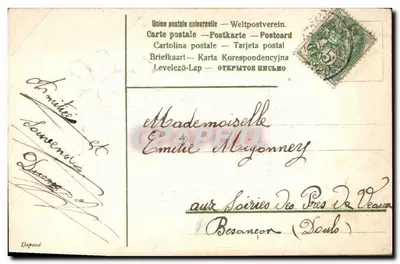 Union postale universelle – Weltpostverein.
Carte postale – Postkarte – Postcard
Cartolina postale – Tarjeta postal
Briefkaart – Karta Korespondencyjna
Levelező-Lap – ОТКРЫТОЕ ПИСЬМО
Amitiés et
Souvenirs
Mademoiselle
Emilie Migonnery
aux Soiries des Prés de Veaux
Besançon (Doubs)
Déposé